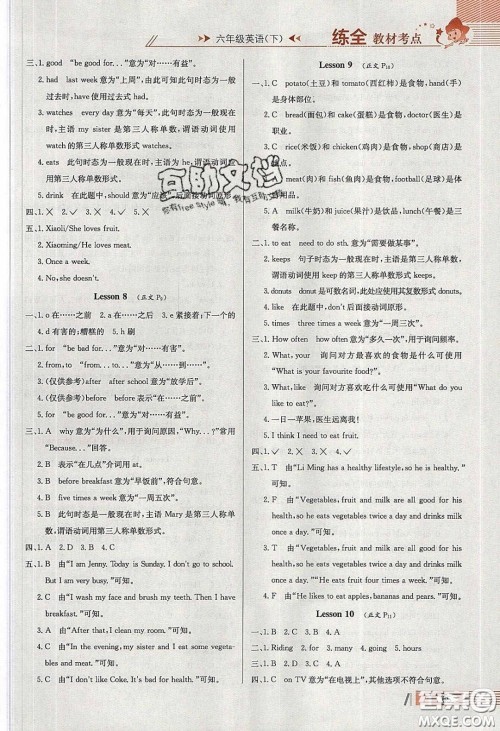 六年级英语(下) 练全 教材考点
三、1. good "be good for..."意为"对……有益"。
2. had last week意为"上周"，此句时态为一般
过去时，have使用过去式had。
3. watches every day意为"每天"，此句时态为一般现在
时，主语my sister是第三人称单数，谓语动词使用
watch的第三人称单数形式watches。
4. eats 此句时态为一般现在时，主语为he，谓语动词
用第三人称单数形式。
5. drink 在此题中，should意为"应该"，后面接动词原形。
四、1. × 2. ✓ 3. × 4. ✓
五、1. Xiaoli/She loves fruit.
2. Xiaoming/He loves meat.
3. Once a week.
4. No, she doesn't.
Lesson 8 (正文P9)
一、1. o 在……之前 2. a 在……之后 3. e 紧接着(下一个)的
4. d 有害的；糟糕的 5. h 刷
二、1. for "be bad for..."意为"对……有害"。
2. from "from... to..."意为"从……到……"。
3. (仅供参考)after after school意为"放学后"。
4. (仅供参考)for "be good for..."意为"对……有益"。
三、1. A why意为"为什么"，用于询问原因，"Why...?"常用
"Because..."回答。
2. B 表示"在几点"介词用at。
3. B before breakfast意为"早饭前"，符合句意。
4. B five times a week意为"一周五次"。
5. B 此句时态是一般现在时，主语Mary是第三人称单
数，谓语动词用第三人称单数形式。
四、1. A 2. D 3. B 4. C
五、1. B 由"I am Jenny. Today is Sunday. I don't go to school.
But I am very busy."可知。
2. C 由"I wash my face and brush my teeth. Then I have
breakfast."可知。
3. A 由"After that, I clean my room."可知。
4. C 由"In the evening, my sister and I eat some vegeta-
bles and meat."可知。
5. C 由"I don't like Coke. It's bad for us."可知。
Lesson 9 (正文P10)
一、1. C potato(土豆)和tomato(西红柿)是食物，hand(手)
是身体部位。
2. C bread(面包)和cake(蛋糕)是食物，doctor(医生)是
职业。
3. C rice(米饭)和chicken(鸡肉)是食物，shop(商店)是
4. B meat(肉)和fish(鱼肉)是食物，football(足球)是
用品。
5. A milk(牛奶)和juice(果汁)是饮品，lunch(午餐)是三
餐名称。
二、1. to eat need to do sth.意为"需要做某事"。
2. keeps 句子时态为一般现在时，主语是第三人称单数，
谓语动词使用keep的第三人称单数形式keeps。
3. donuts donut是可数名词，此处应使用其复数形式donuts。
4. like 在此题中，don't后面接动词原形。
5. times three times a week意为"一周三次"。
三、1. How often how often意为"多久一次"，用于询问频率。
2. What, your 询问对方最喜欢的食物是什么可使用
"What is your favourite food?"。
3. What, like 询问对方喜欢吃什么可使用"What do you
like to eat?"。
4. 一日一苹果，医生远离我！
5. I think I need to eat fruit.
四、1. ✓ 2. × 3. × 4. ✓
五、1. T 由"Li Ming has a healthy lifestyle, so he is healthy."
可知。
2. F 由"Vegetables, fruit and milk are all good for his
health, so he eats vegetables twice a day and drinks milk
once a day."可知。
3. F 由"Vegetables, fruit and milk are all good for his
health, so he eats vegetables twice a day and drinks
milk once a day."可知。
4. F 由"He eats fruit four times a week."可知。
5. T 由"Vegetables, fruit and milk are all good for his
health"可知。
Lesson 10 (正文P11)
一、1. B 2. B 3. B 4. A
二、1. C 2. A 3. B 4. D
三、1. Riding 2. more 3. Watching 4. computer
四、1. C on TV意为"在电视上"，其他选项不符合句意。
互助文档
MXQE.COM